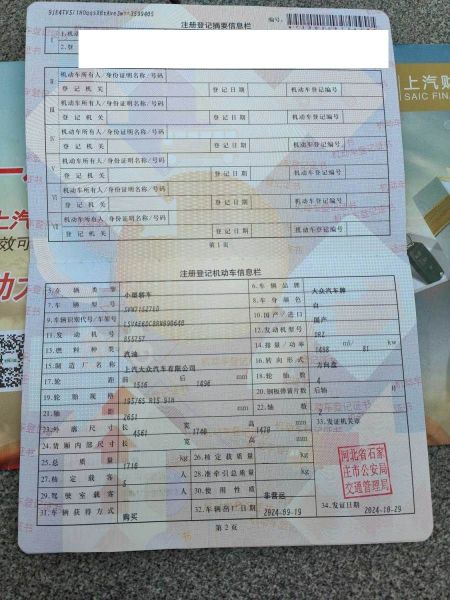 注册登记摘要信息栏
编号:
Ⅰ 1.机
2.登
Ⅱ 机动车所有人/身份证明名称/号码
登记机关 登记日期 机动车登记编号
Ⅲ 机动车所有人/身份证明名称/号码
登记机关 登记日期 机动车登记编号
Ⅳ 机动车所有人/身份证明名称/号码
登记机关 登记日期 机动车登记编号
Ⅴ 机动车所有人/身份证明名称/号码
登记机关 登记日期 机动车登记编号
Ⅵ 机动车所有人/身份证明名称/号码
登记机关 登记日期 机动车登记编号
Ⅶ 机动车所有人/身份证明名称/号码
登记机关 登记日期 机动车登记编号
第1页
注册登记机动车信息栏
5.车辆类型 小型轿车 6.车辆品牌 大众汽车牌
7.车辆型号 8.车身颜色 白
9.车辆识别代号/车架号 10.国产/进口 国产
11.发动机号 12.发动机型号
13.燃料种类 汽油 14.排量/功率 1498 ml 81 kw
15.制造厂名称 上汽大众汽车有限公司 16.转向形式 方向盘
17.轮距 前 1516 后 1496 mm 18.轮胎数 4
19.轮胎规格 195/65 R15 91H 20.钢板弹簧片数
21.轴距 2651 mm 22.轴数 2
23.外廓尺寸 长 4561 宽 1740 高 mm 33.发证机关章
24.货厢内部尺寸 长 宽 高 mm
25.总质量 1710 kg 26.核定载质量 kg
27.核定载客 5 人 28.准牵引总质量 kg
29.驾驶室载客 人 30.使用性质 非营运
31.车辆获得方式 购买 32.车辆出厂日期 2024-09-19 34.发证日期 2024-10-29
河北省石家
庄市公安局
交通管理局
第2页
上汽财
SAIC FINA
上汽
效可
动力